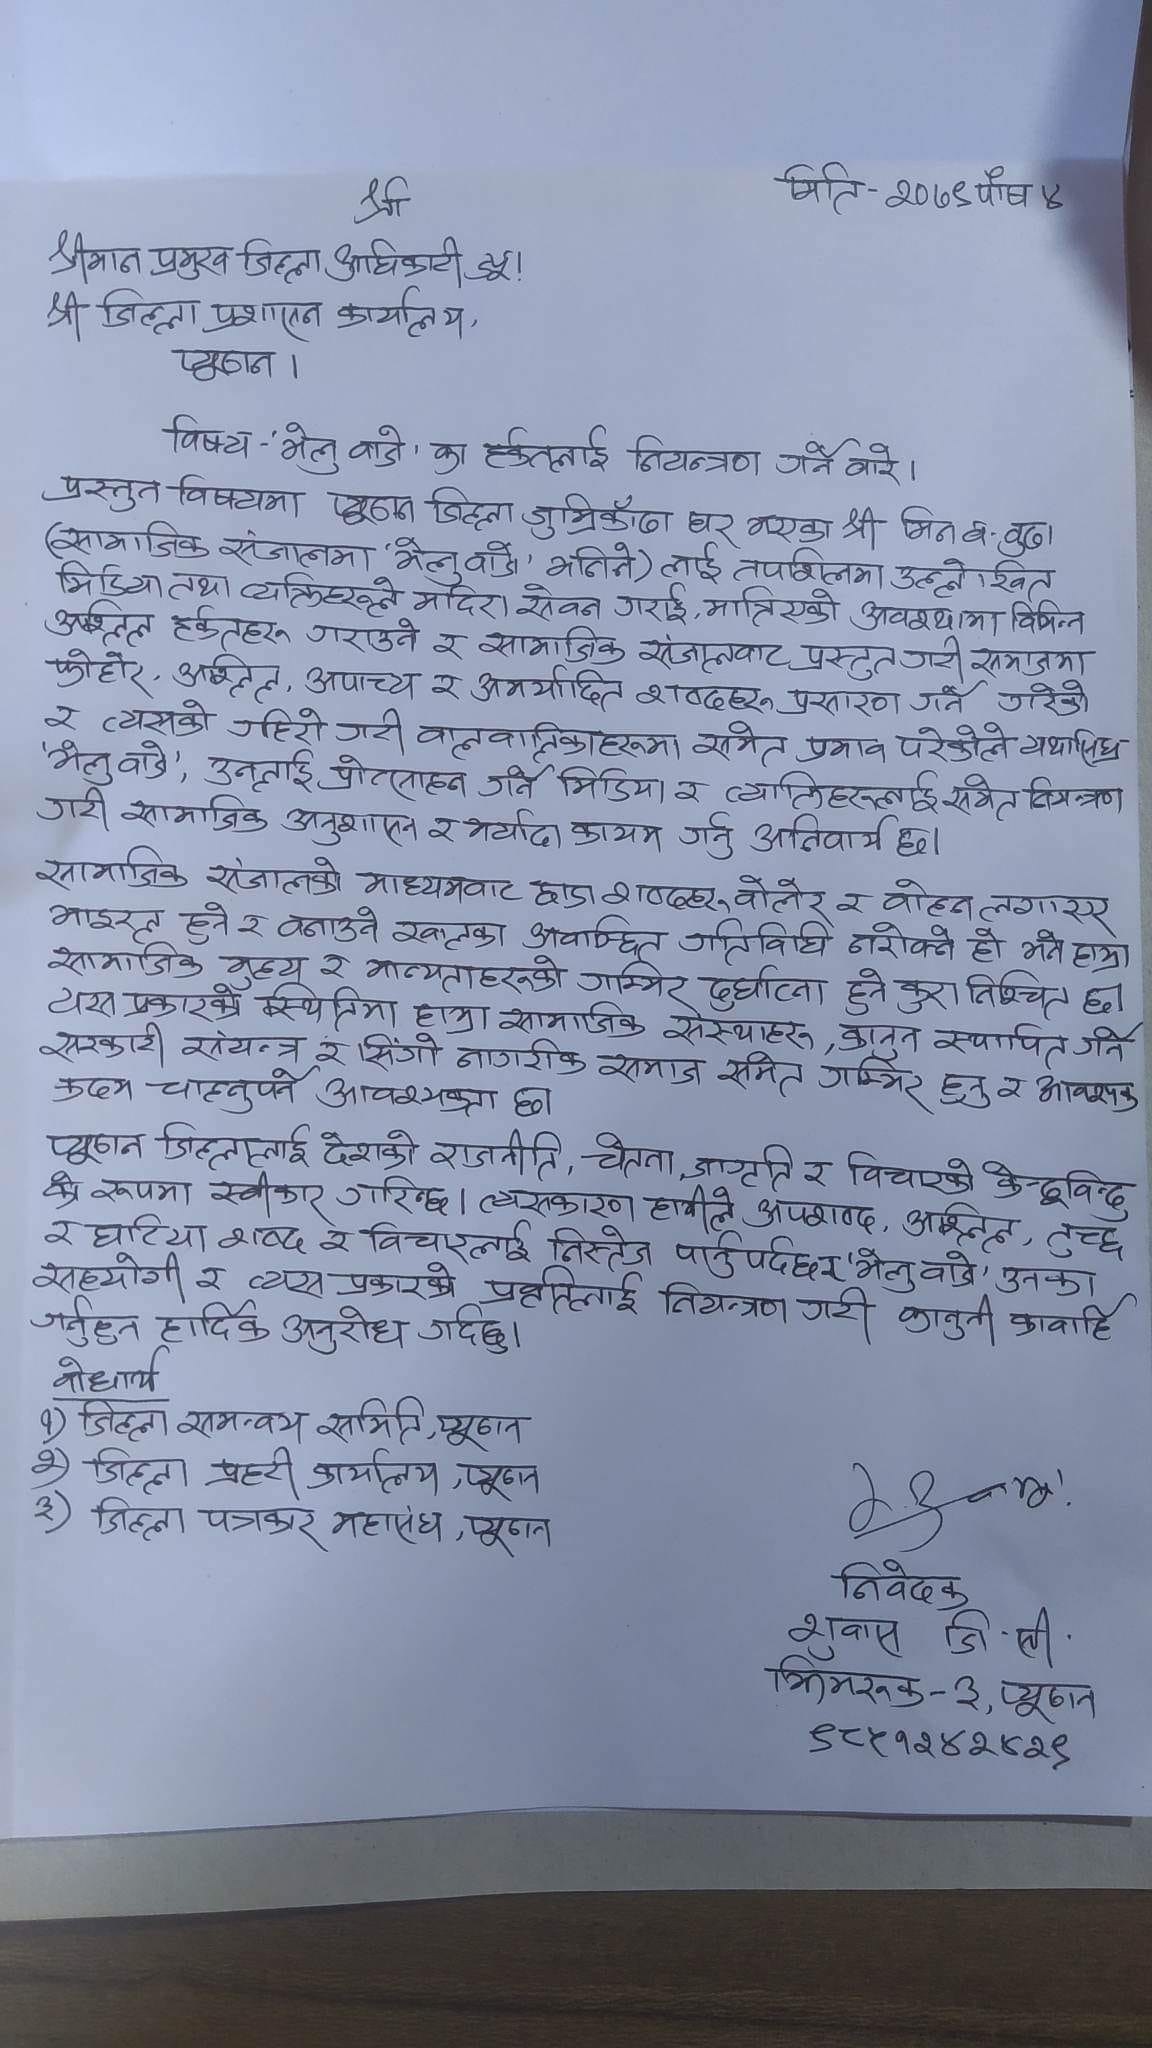 श्री
मिति - २०७९ पौष ४
श्रीमान प्रमुख जिल्ला अधिकारी ज्यू!
श्री जिल्ला प्रशासन कार्यालय,
प्यूठान ।
विषय - 'भेलु वाडे' का हर्कतलाई नियन्त्रण गर्ने वारे ।
प्रस्तुत विषयमा प्यूठान जिल्ला जुम्रिकाँढा घर भएका श्री मिन व. वुढा
(सामाजिक संजालमा 'भेलु वाडे' भनिने) लाई तपशिलमा उल्लेखित
मिडिया तथा व्यक्तिहरूले मदिरा सेवन गराई, मात्तिएको अवस्थामा विभिन्न
अश्लिल हर्कतहरू गराउने र सामाजिक संजालवाट प्रस्तुत गरी समाजमा
फोहोर, अश्लिल, अपाच्य र अमर्यादित शव्दहरू प्रसारण गर्ने गरेको
र त्यसको गहिरो गरी वालवालिकाहरूमा समेत प्रभाव परेकोले यथासिघ्र
'भेलु वाडे', उनलाई प्रोत्साहन गर्ने मिडिया र व्यक्तिहरूलाई समेत नियन्त्रण
गरी सामाजिक अनुशासन र मर्यादा कायम गर्नु अनिवार्य छ।
सामाजिक संजालको माध्यमवाट छाडा शव्दहरू वोलेर र वोल्न लगाएर
भाइरल हुने र वनाउने खालका अवाञ्छित गतिविधि नरोक्ने हो भने हाम्रा
सामाजिक मुल्य र मान्यताहरूको गम्भिर दुर्घटना हुने कुरा निश्चित छ।
यस प्रकारको स्थितिमा हाम्रा सामाजिक संस्थाहरू, कानुन स्थापित गर्ने
सरकारी संयन्त्र र सिंगो नागरीक समाज समेत गम्भिर हुनु र आवश्यक
कदम चाल्नुपर्ने आवश्यक्ता छ।
प्यूठान जिल्लालाई देशको राजनीति, चेतना, जागृति र विचारको केन्द्रविन्दु
को रूपमा स्वीकार गरिन्छ। त्यसकारण हामीले अपशव्द, अश्लिल, तुच्छ
र घटिया शव्द र विचारलाई निस्तेज पार्नुपर्दछ र 'भेलु वाडे' उनका
सहयोगी र त्यस प्रकारको प्रवृत्तिलाई नियन्त्रण गरी कानुनी कार्वाहि
गर्नुहुन हार्दिक अनुरोध गर्दछु।
वोधार्थ
१) जिल्ला समन्वय समिति, प्यूठान
२) जिल्ला प्रहरी कार्यालय, प्यूठान
३) जिल्ला पत्रकार महासंघ, प्यूठान
निवेदक
शुवास जि. सी.
झिमरूक - ३, प्यूठान
९८५१२४२४२९